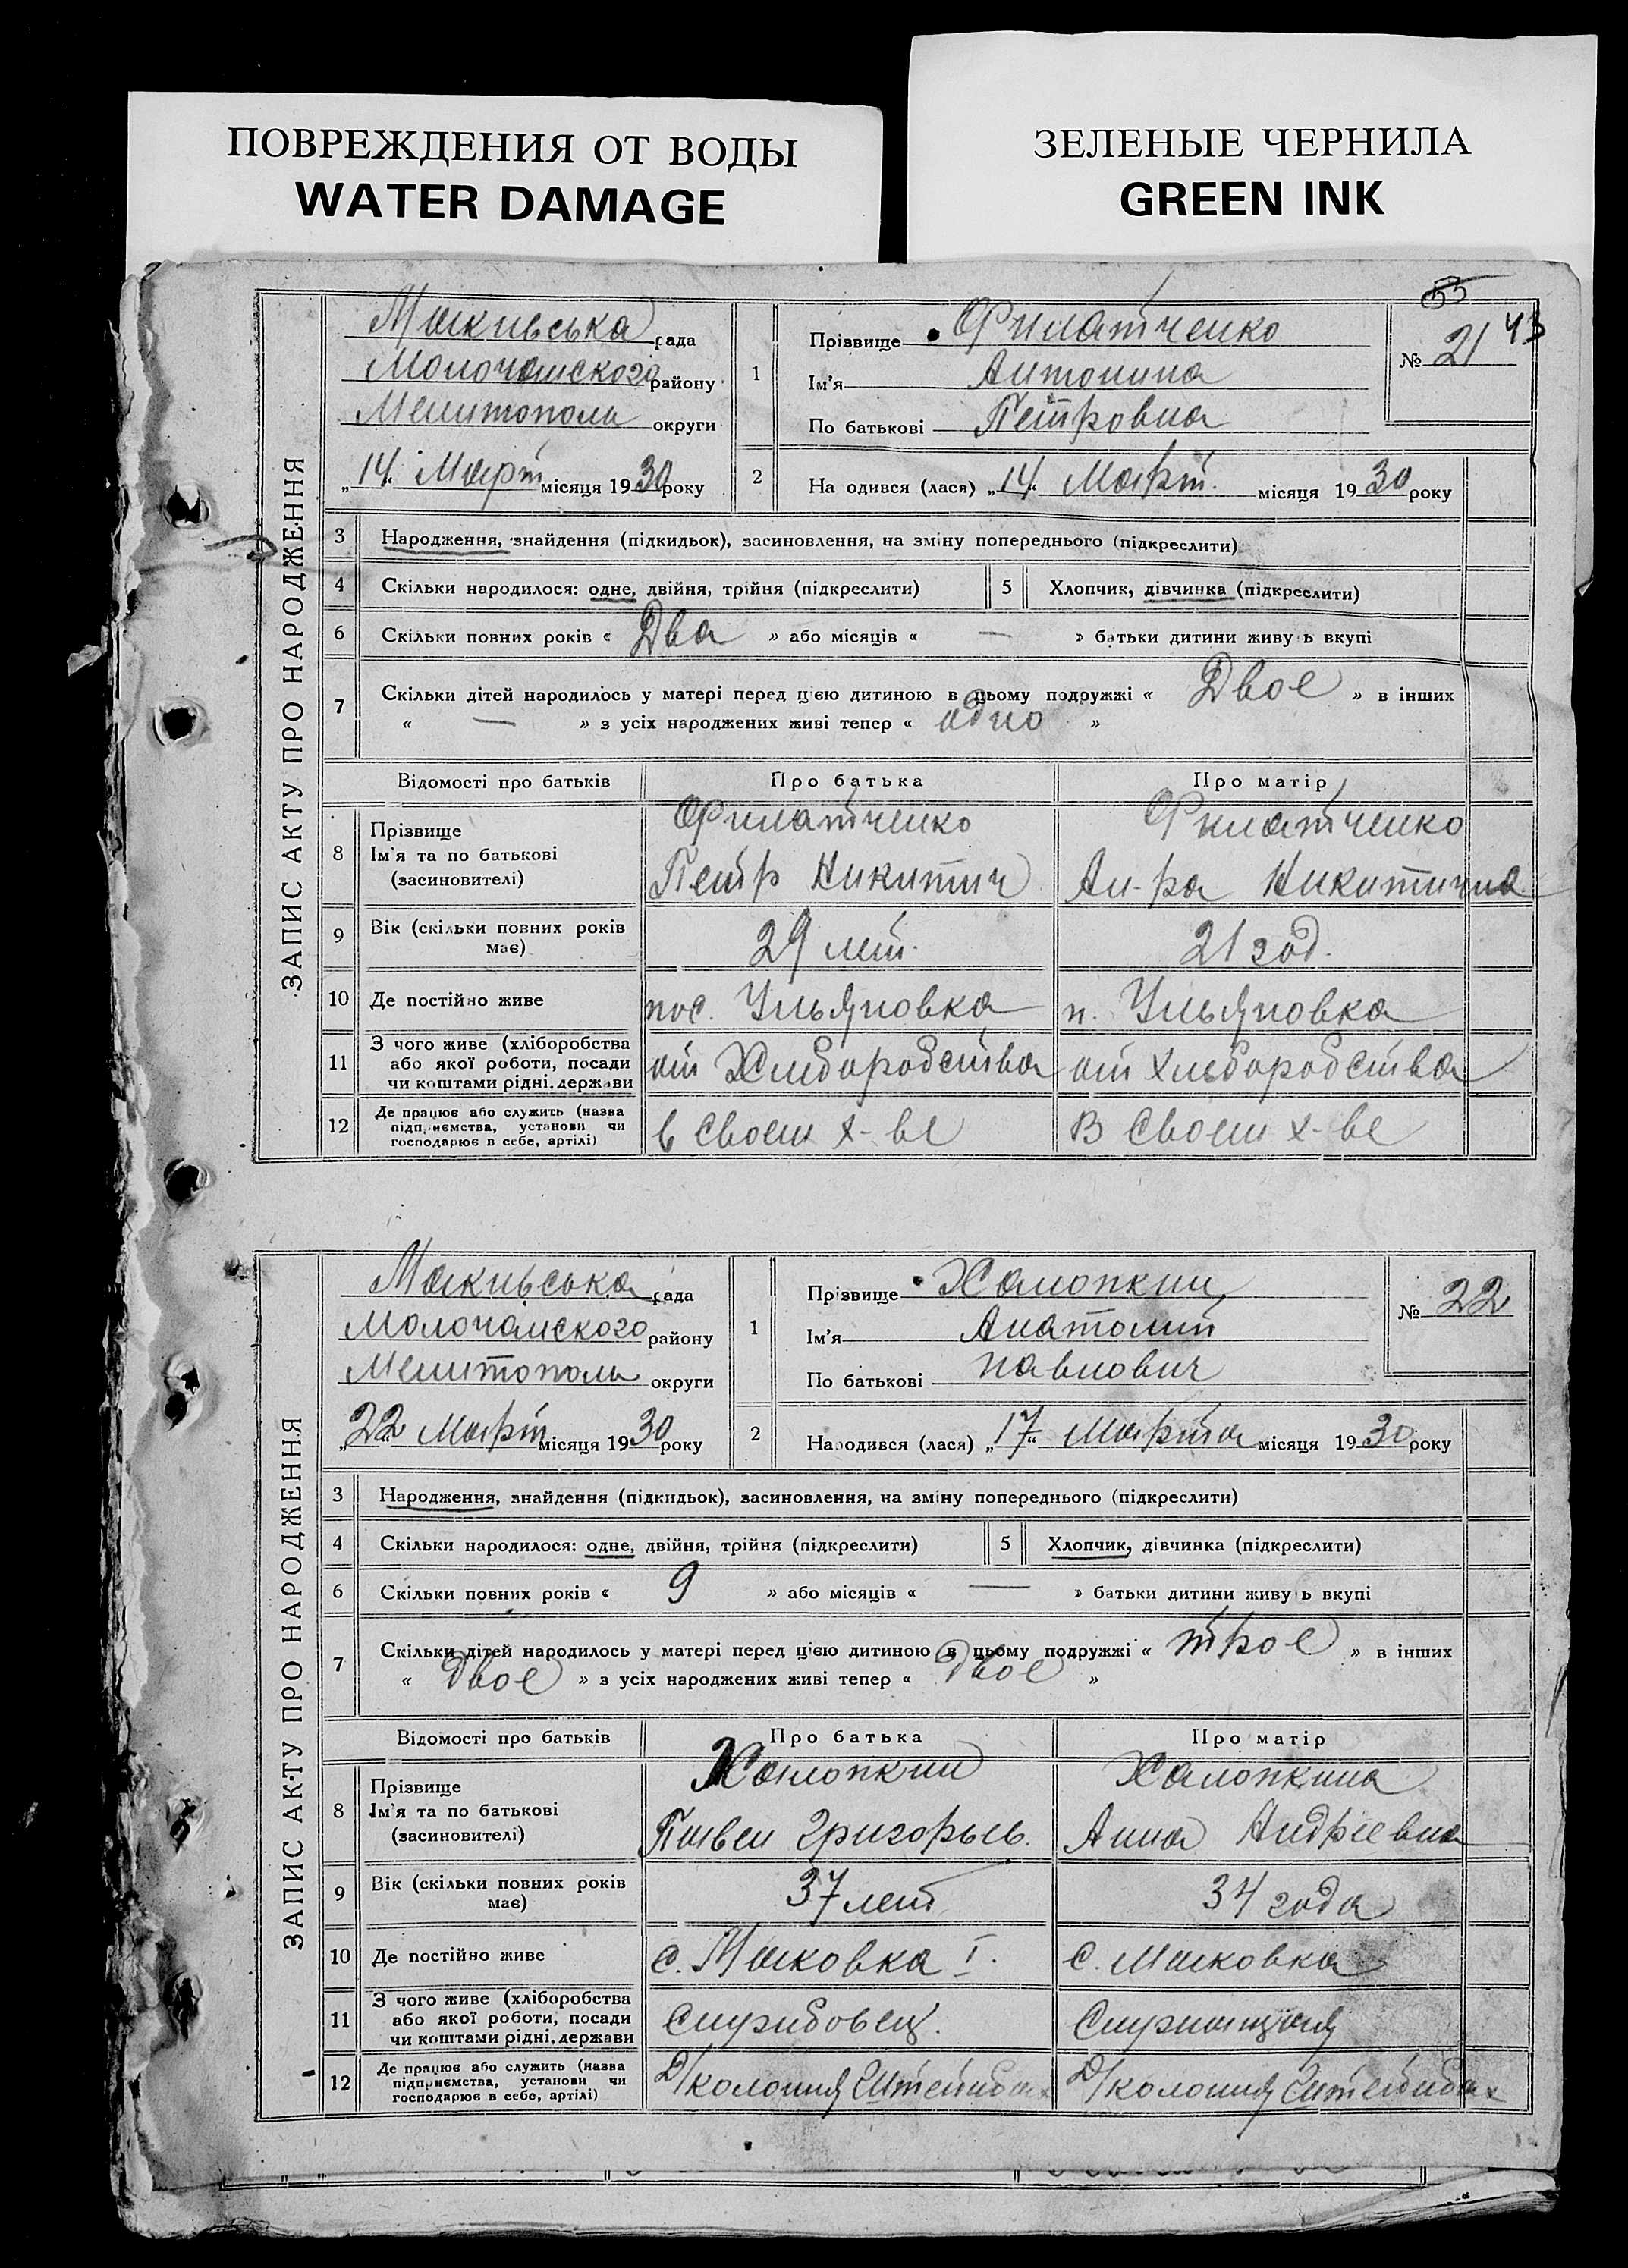 ПОВРЕЖДЕНИЯ ОТ ВОДЫ
WATER DAMAGE
ЗЕЛЕНЫЕ ЧЕРНИЛА
GREEN INK
53
43
ЗАПИС АКТУ ПРО НАРОДЖЕННЯ
рада
Молочанского району
Мелитополь округи
„14“ Март місяця 1930 року
1
Прізвище Филатченко
Ім’я Антонина
По батькові Петровна
№ 21
2
На одився (лася) „14“ Март. місяця 1930 року
3 Народження, знайдення (підкидьок), засиновлення, на зміну попереднього (підкреслити)
4 Скільки народилося: одне, двійня, трійня (підкреслити) 5 Хлопчик, дівчинка (підкреслити)
6 Скільки повних років « Два » або місяців « — » батьки дитини живу ь вкупі
7 Скільки дітей народилось у матері перед цією дитиною в цьому подружжі « Двое » в інших
« — » з усіх народжених живі тепер « одно »
Відомості про батьків Про батька Про матір
8 Прізвище
Ім’я та по батькові
(засиновителі)
Филатченко
Петр Никитич
Филатченко
Ан-ра Никитична
9 Вік (скільки повних років
має)
29 лет.
21 год.
10 Де постійно живе пос. Ульяновка п. Ульяновка
11 З чого живе (хліборобства
або якої роботи, посади
чи коштами рідні, держави
от Хлеборобства
от хлеборобства
12 Де працює або служить (назва
підприємства, установи чи
господарює в себе, артілі)
в своем х-ве
в своем х-ве
ЗАПИС АКТУ ПРО НАРОДЖЕННЯ
рада
Молочанского району
Мелитополь округи
„22“ Март місяця 1930 року
1
Прізвище Халопкин
Ім’я Анатолий
По батькові павлович
№ 22
2
Народився (лася) „17“ Марта місяця 1930 року
3 Народження, знайдення (підкидьок), засиновлення, на зміну попереднього (підкреслити)
4 Скільки народилося: одне, двійня, трійня (підкреслити) 5 Хлопчик, дівчинка (підкреслити)
6 Скільки повних років « 9 » або місяців « — » батьки дитини живу ь вкупі
7 Скільки дітей народилось у матері перед цією дитиною в цьому подружжі « трое » в інших
« Двое » з усіх народжених живі тепер « Двое »
Відомості про батьків Про батька Про матір
8 Прізвище
Ім’я та по батькові
(засиновителі)
Халопкин
Павел Григорьев.
Халопкина
Анна Андреевна
9 Вік (скільки повних років
має)
37 лет
34 года
10 Де постійно живе с. I. с.
11 З чого живе (хліборобства
або якої роботи, посади
чи коштами рідні, держави
12 Де працює або служить (назва
підприємства, установи чи
господарює в себе, артілі)
Д/колония Штейнбах
Д/колония Штейнбах